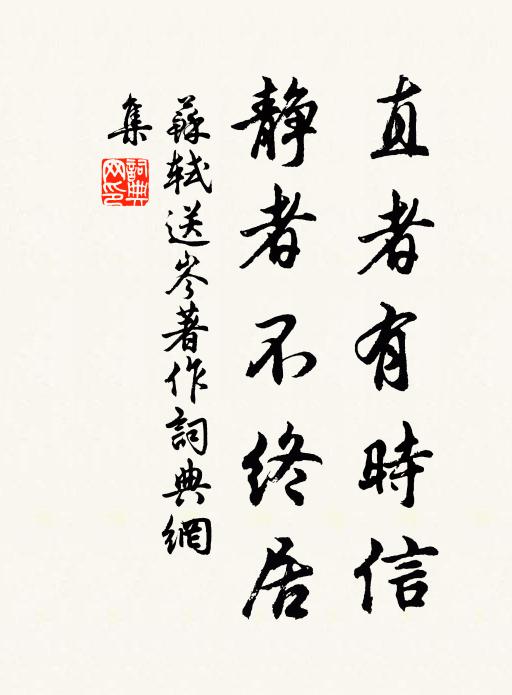 直者有時信
静者不終居
蘇軾送岑著作詞典網
集
詞典網印